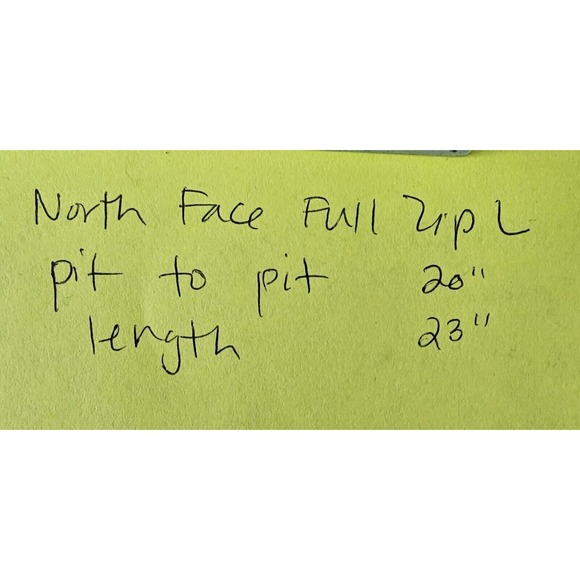 North Face Full Zip L
pit to pit 20"
length 23"